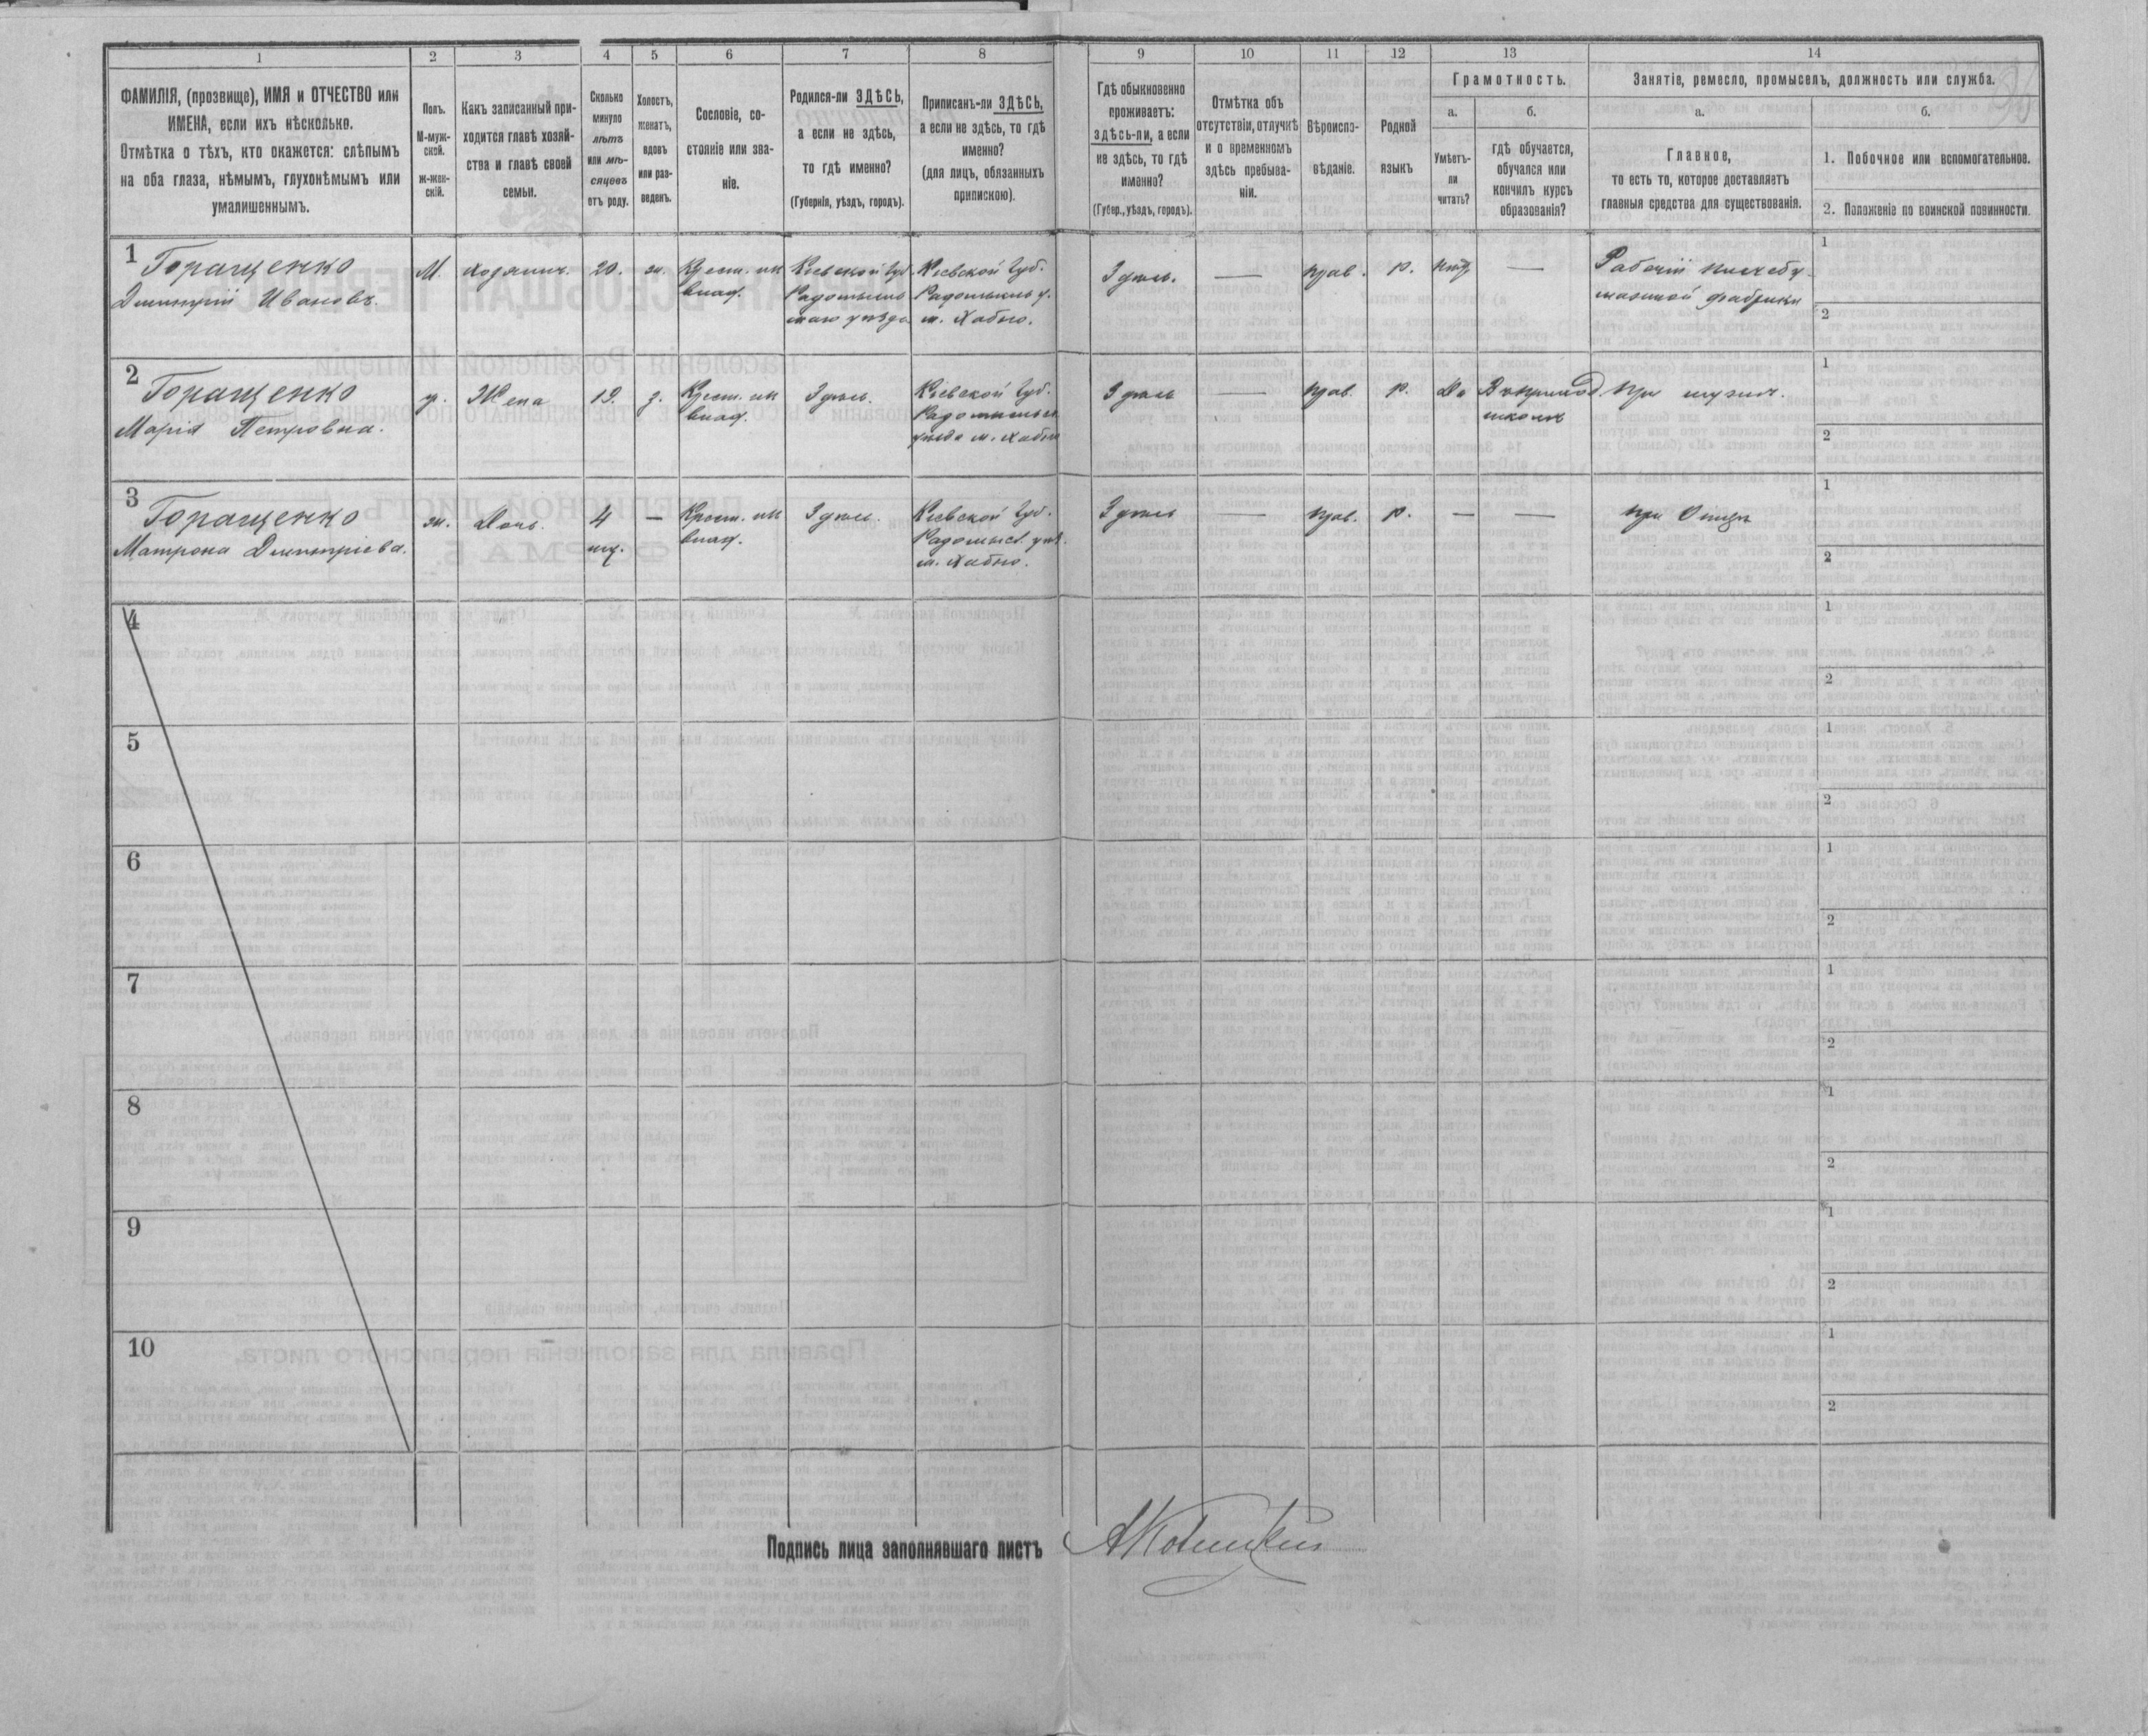 1 2 3 4 5 6 7 8 9 10 11 12 13 14
ФАМИЛІЯ, (прозвище), ИМЯ и ОТЧЕСТВО или
ИМЕНА, если ихъ нѣсколько.
Отмѣтка о тѣхъ, кто окажется: слѣпымъ
на оба глаза, нѣмымъ, глухонѣмымъ или
умалишеннымъ.
Полъ.
М-муж-
ской.
Ж-жен-
скій.
Какъ записанный при-
ходится главѣ хозяй-
ства и главѣ своей
семьи.
Сколько
минуло
лѣтъ
или мѣ-
сяцевъ
отъ роду.
Холостъ,
женатъ,
вдовъ
или раз-
веденъ.
Сословіе, со-
стояніе или зва-
ніе.
Родился-ли ЗДѢСЬ,
а если не здѣсь,
то гдѣ именно?
(Губернія, уѣздъ, городъ).
Приписанъ-ли ЗДѢСЬ,
а если не здѣсь, то гдѣ
именно?
(для лицъ, обязанныхъ
припискою).
Гдѣ обыкновенно
проживаетъ:
здѣсь-ли, а если
не здѣсь, то гдѣ
именно?
(Губер., уѣздъ, городъ).
Отмѣтка объ
отсутствіи, отлучкѣ
и о временномъ
здѣсь пребыва-
ніи.
Вѣроиспо-
вѣданіе.
Родной
языкъ.
Грамотность.
а. б.
Умѣетъ-
ли
читать?
гдѣ обучается,
обучался или
кончилъ курсъ
образованія?
Занятіе, ремесло, промыселъ, должность или служба.
а. б.
Главное,
то есть то, которое доставляетъ
главныя средства для существованія.
1. Побочное или вспомогательное.
2. Положеніе по воинской повинности.
1
Горащенко
Дмитрій Ивановъ.
М.
хозяинъ.
20.
ж.
Крест. из
влад.
Кіевской Губ.
Кіевской Губ.
м. Хабно.
Здѣсь.
—
прав.
р.
нѣтъ
—
Рабочій
фабрики
1
2
2
Горащенко
Марія Петровна.
Жена
19.
з.
Крест. из
влад.
Здѣсь.
Кіевской Губ.
уѣзда м. Хабно
Здѣсь
—
прав.
р.
Да
школѣ
при мужѣ.
1
2
3
Горащенко
Матрона Дмитріева.
ж.
Дочь.
4
мц.
—
Крест. из
влад.
Здѣсь.
Кіевской Губ.
Радомысл. уѣз.
м. Хабно.
Здѣсь
—
прав.
р.
—
—
при Отцѣ
1
2
4
1
2
5
1
2
6
1
2
7
1
2
8
1
2
9
1
2
10
1
2
Подпись лица заполнявшаго листъ